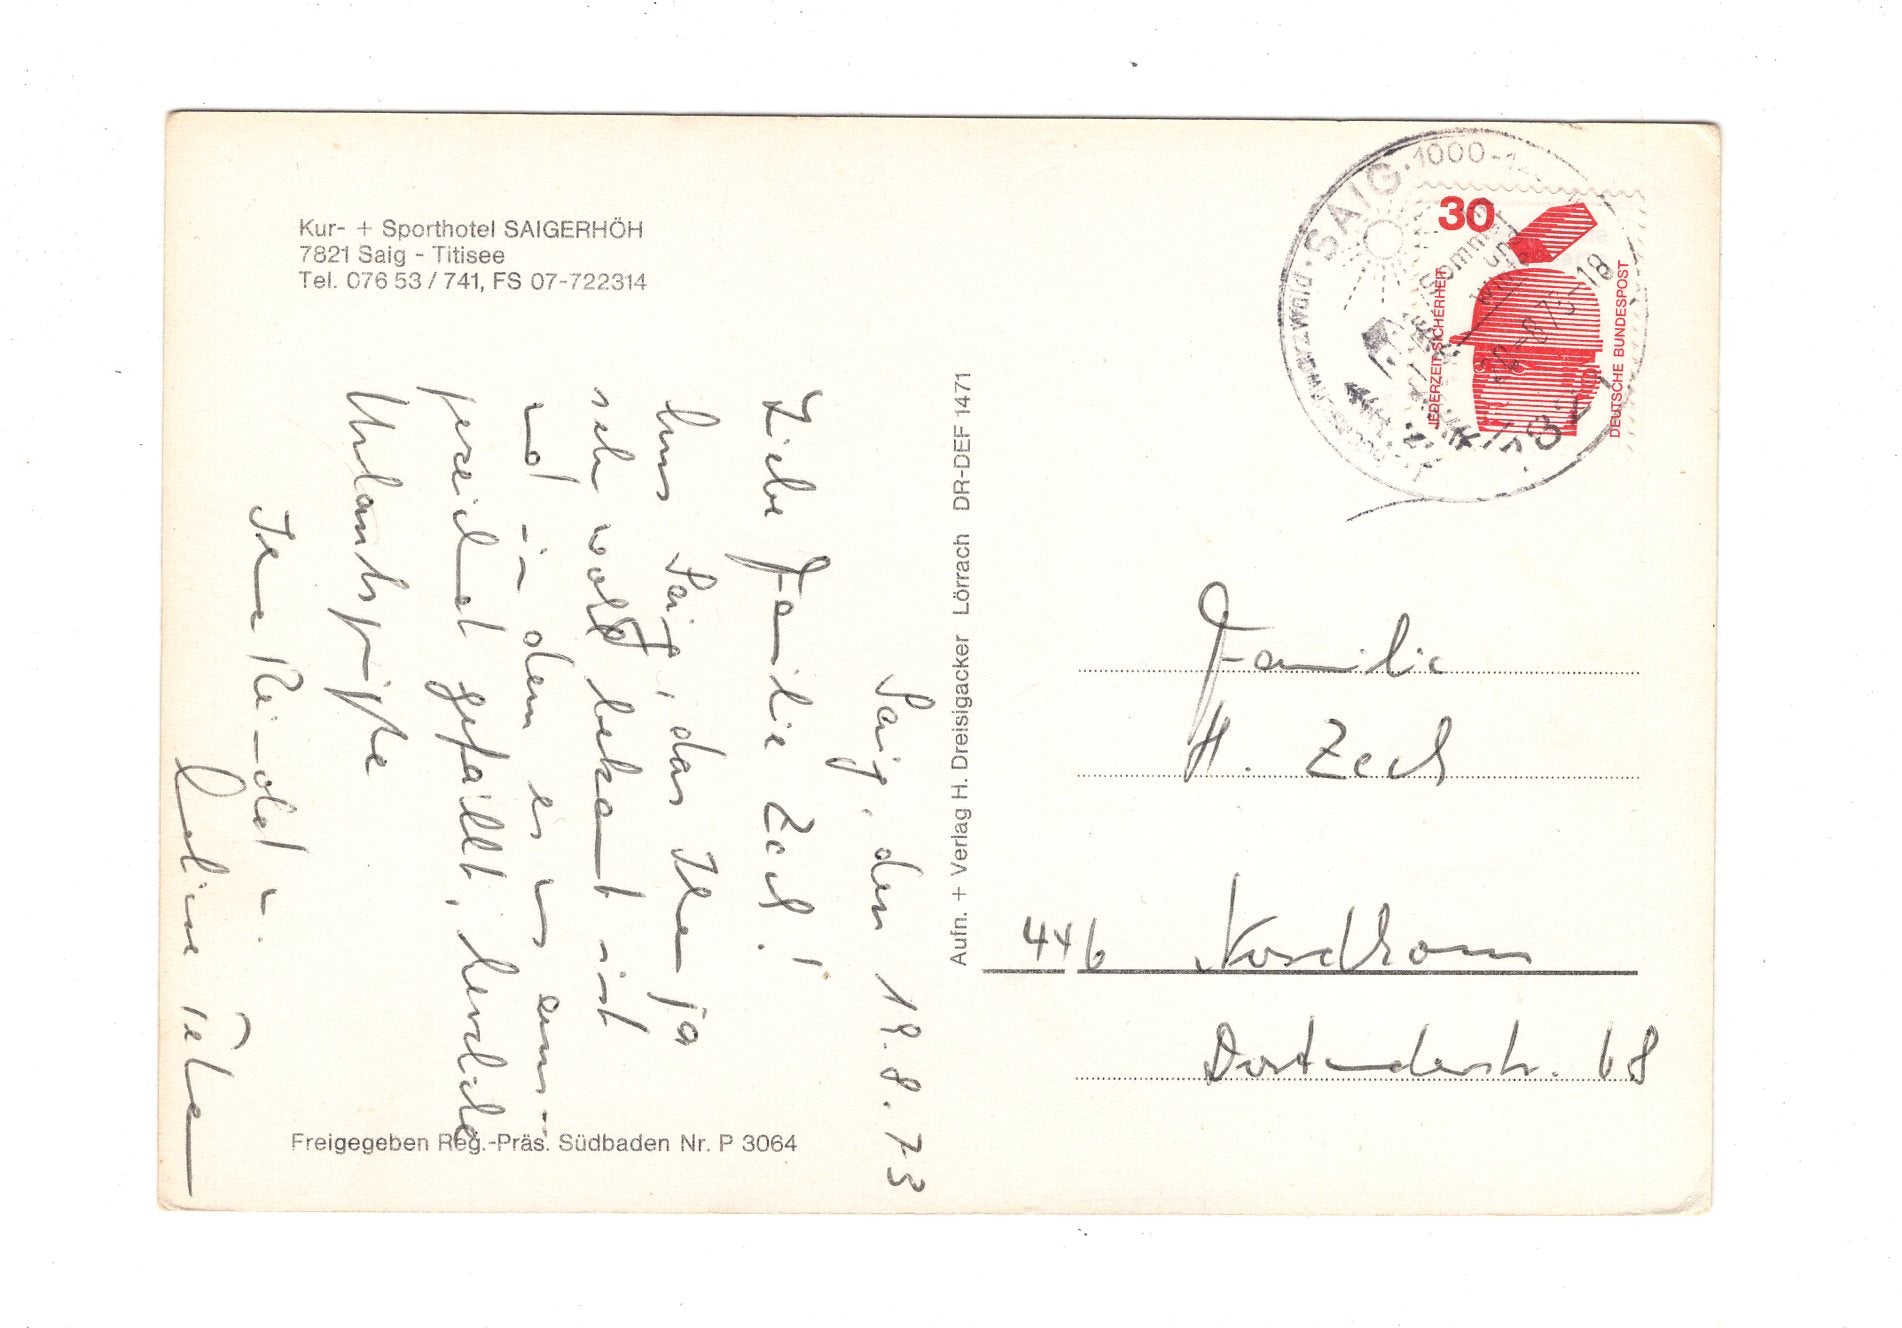 Kur- + Sporthotel SAIGERHÖH
7821 Saig - Titisee
Tel. 076 53 / 741, FS 07-722314
Saig, den 19.8.73
Liebe Familie Zech!
Aus Saig, das Ihnen ja
sehr wohl bekannt ist
und in dem es uns aus-
gezeichnet gefällt, herzliche
Urlaubsgrüße
Ihre Reinhold u.
Aufn. + Verlag H. Dreisigacker Lörrach DR-DEF 1471
Freigegeben Reg.-Präs. Südbaden Nr. P 3064
SAIG · 1000-
Hochschwarzwald
Sommer
und
30
JEDERZEIT SICHERHEIT
DEUTSCHE BUNDESPOST
Familie
H. Zech
446 Nordhorn
Dortmunderstr. 68